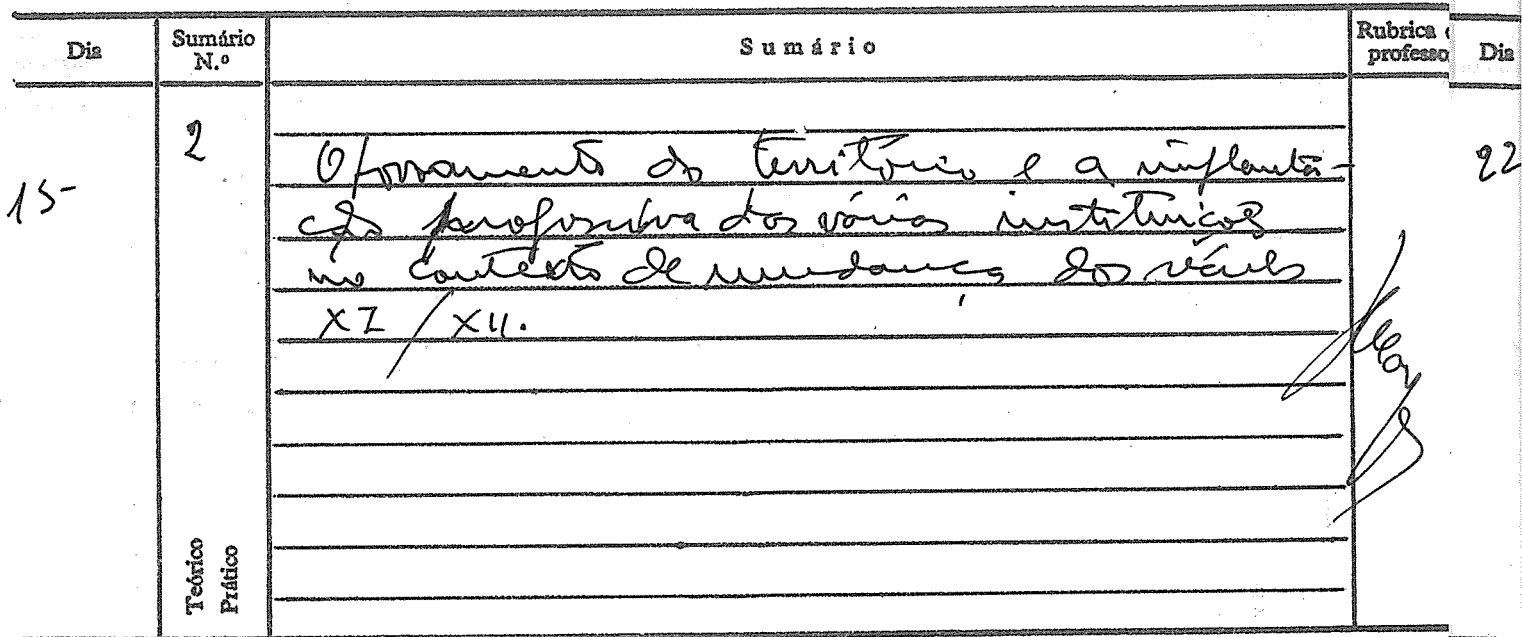 Dia
Sumário N.º
Sumário
Rubrica
professo
Dia
15-
2
O do território e a implanta-
ção progressiva das várias instituições
no contexto de mudança dos séculos
XI / XII.
22
Teórico
Prático